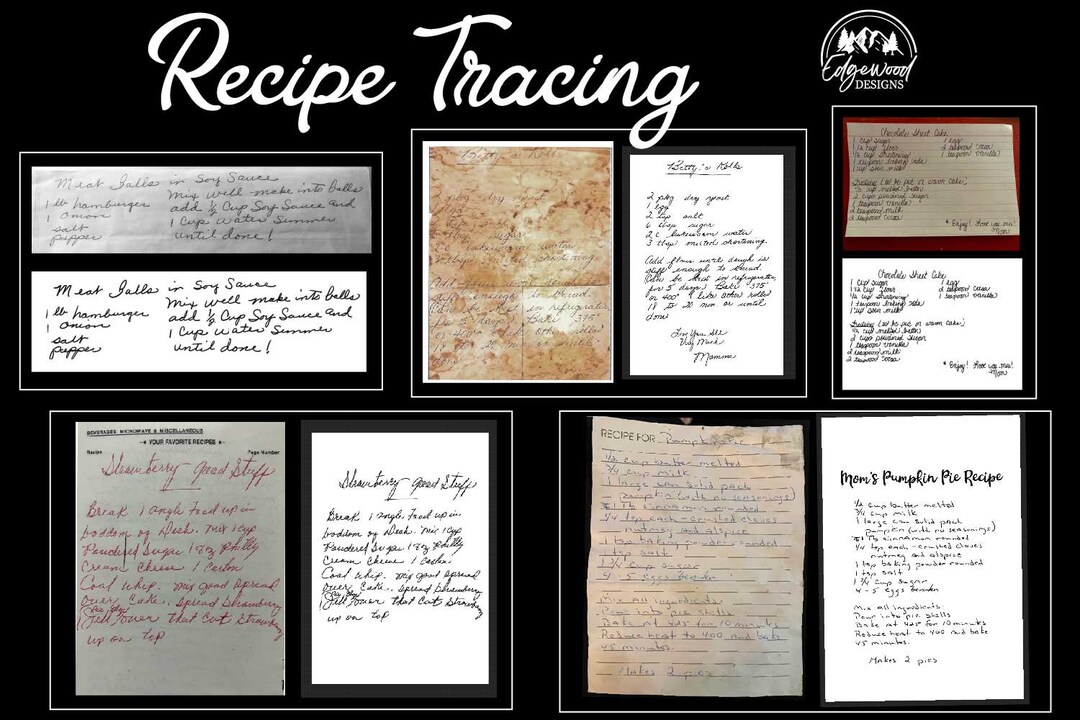 Recipe Tracing
Edgewood
DESIGNS
Meat Balls in Soy Sauce
1 lb hamburger Mix well make into balls
1 onion add ½ Cup Soy Sauce and
salt 1 Cup Water Summer
pepper until done!
Meat Balls in Soy Sauce
1 lb hamburger Mix well make into balls
1 onion add ½ Cup Soy Sauce and
salt 1 Cup Water Summer
pepper until done!
Betty's Rolls
Betty's Rolls
2 pkg dry yeast
1 egg
2 tsp salt
6 tbsp sugar
2 c lukewarm water
3 tbsp melted shortening.
Add flour until dough is
stiff enough to knead.
Can be kept in refrigerator
for 5 days. Bake 375°
or 400° like other rolls
18 to 20 min or until
done
Love You All
Very Much
Mamma
Chocolate Sheet Cake
1 cup sugar 1 egg
1 ¼ cup flour 2 teaspoon cocoa
¼ cup shortening 1 teaspoon vanilla
1 teaspoon baking soda
1 cup sour milk
Frosting (to be put on warm cake;)
¼ cup melted butter
2 cup powdered sugar
1 teaspoon vanilla
2 teaspoon milk
2 teaspoon cocoa
* Enjoy! Love you mis!
Mom
Chocolate Sheet Cake
1 cup sugar 1 egg
1 ¼ cup flour 2 teaspoon cocoa
¼ cup shortening 1 teaspoon vanilla
1 teaspoon baking soda
1 cup sour milk
Frosting (to be put on warm cake;)
¼ cup melted butter
2 cup powdered sugar
1 teaspoon vanilla
2 teaspoon milk
2 teaspoon cocoa
* Enjoy! Love you mis!
Mom
BEVERAGES, MICROWAVE & MISCELLANEOUS
YOUR FAVORITE RECIPES
Recipe Page Number
Strawberry - Good Stuff
Break 1 angle Food up in
boddom of Dish. mix 1 cup
Powdered Sugar 1 8oz Philly
Cream Cheese 1 Carton
Cool whip. mix good Spread
over Cake. Spread Strawberry
Pie Jell over that Cut Strawberry
up on top
Strawberry - Good Stuff
Break 1 angle Food up in
boddom of Dish. mix 1 cup
Powdered Sugar 1 8oz Philly
Cream Cheese 1 Carton
Cool whip. mix good Spread
over Cake. Spread Strawberry
Pie Jell over that Cut Strawberry
up on top
RECIPE FOR Pumpkin Pie
½ cup butter melted
¾ cup milk
1 large can solid pack
pumpkin (with no seasonings)
1 Tb cinnamon rounded
¼ tsp each - crushed cloves
nutmeg and alspice
1 tsp baking powder rounded
1 tsp salt
1 ¾ cup sugar
4 - 5 eggs beaten
Mix all ingredients.
Pour into pie shells
Bake at 425 for 10 minutes
Reduce heat to 400 and bake
45 minutes.
Makes 2 pies
Mom's Pumpkin Pie Recipe
½ cup butter melted
¾ cup milk
1 large can solid pack
pumpkin (with no seasonings)
1 Tb cinnamon rounded
¼ tsp each - crushed cloves
nutmeg and alspice
1 tsp baking powder rounded
1 tsp salt
1 ¾ cup sugar
4 - 5 eggs beaten
Mix all ingredients.
Pour into pie shells
Bake at 425 for 10 minutes
Reduce heat to 400 and bake
45 minutes.
Makes 2 pies